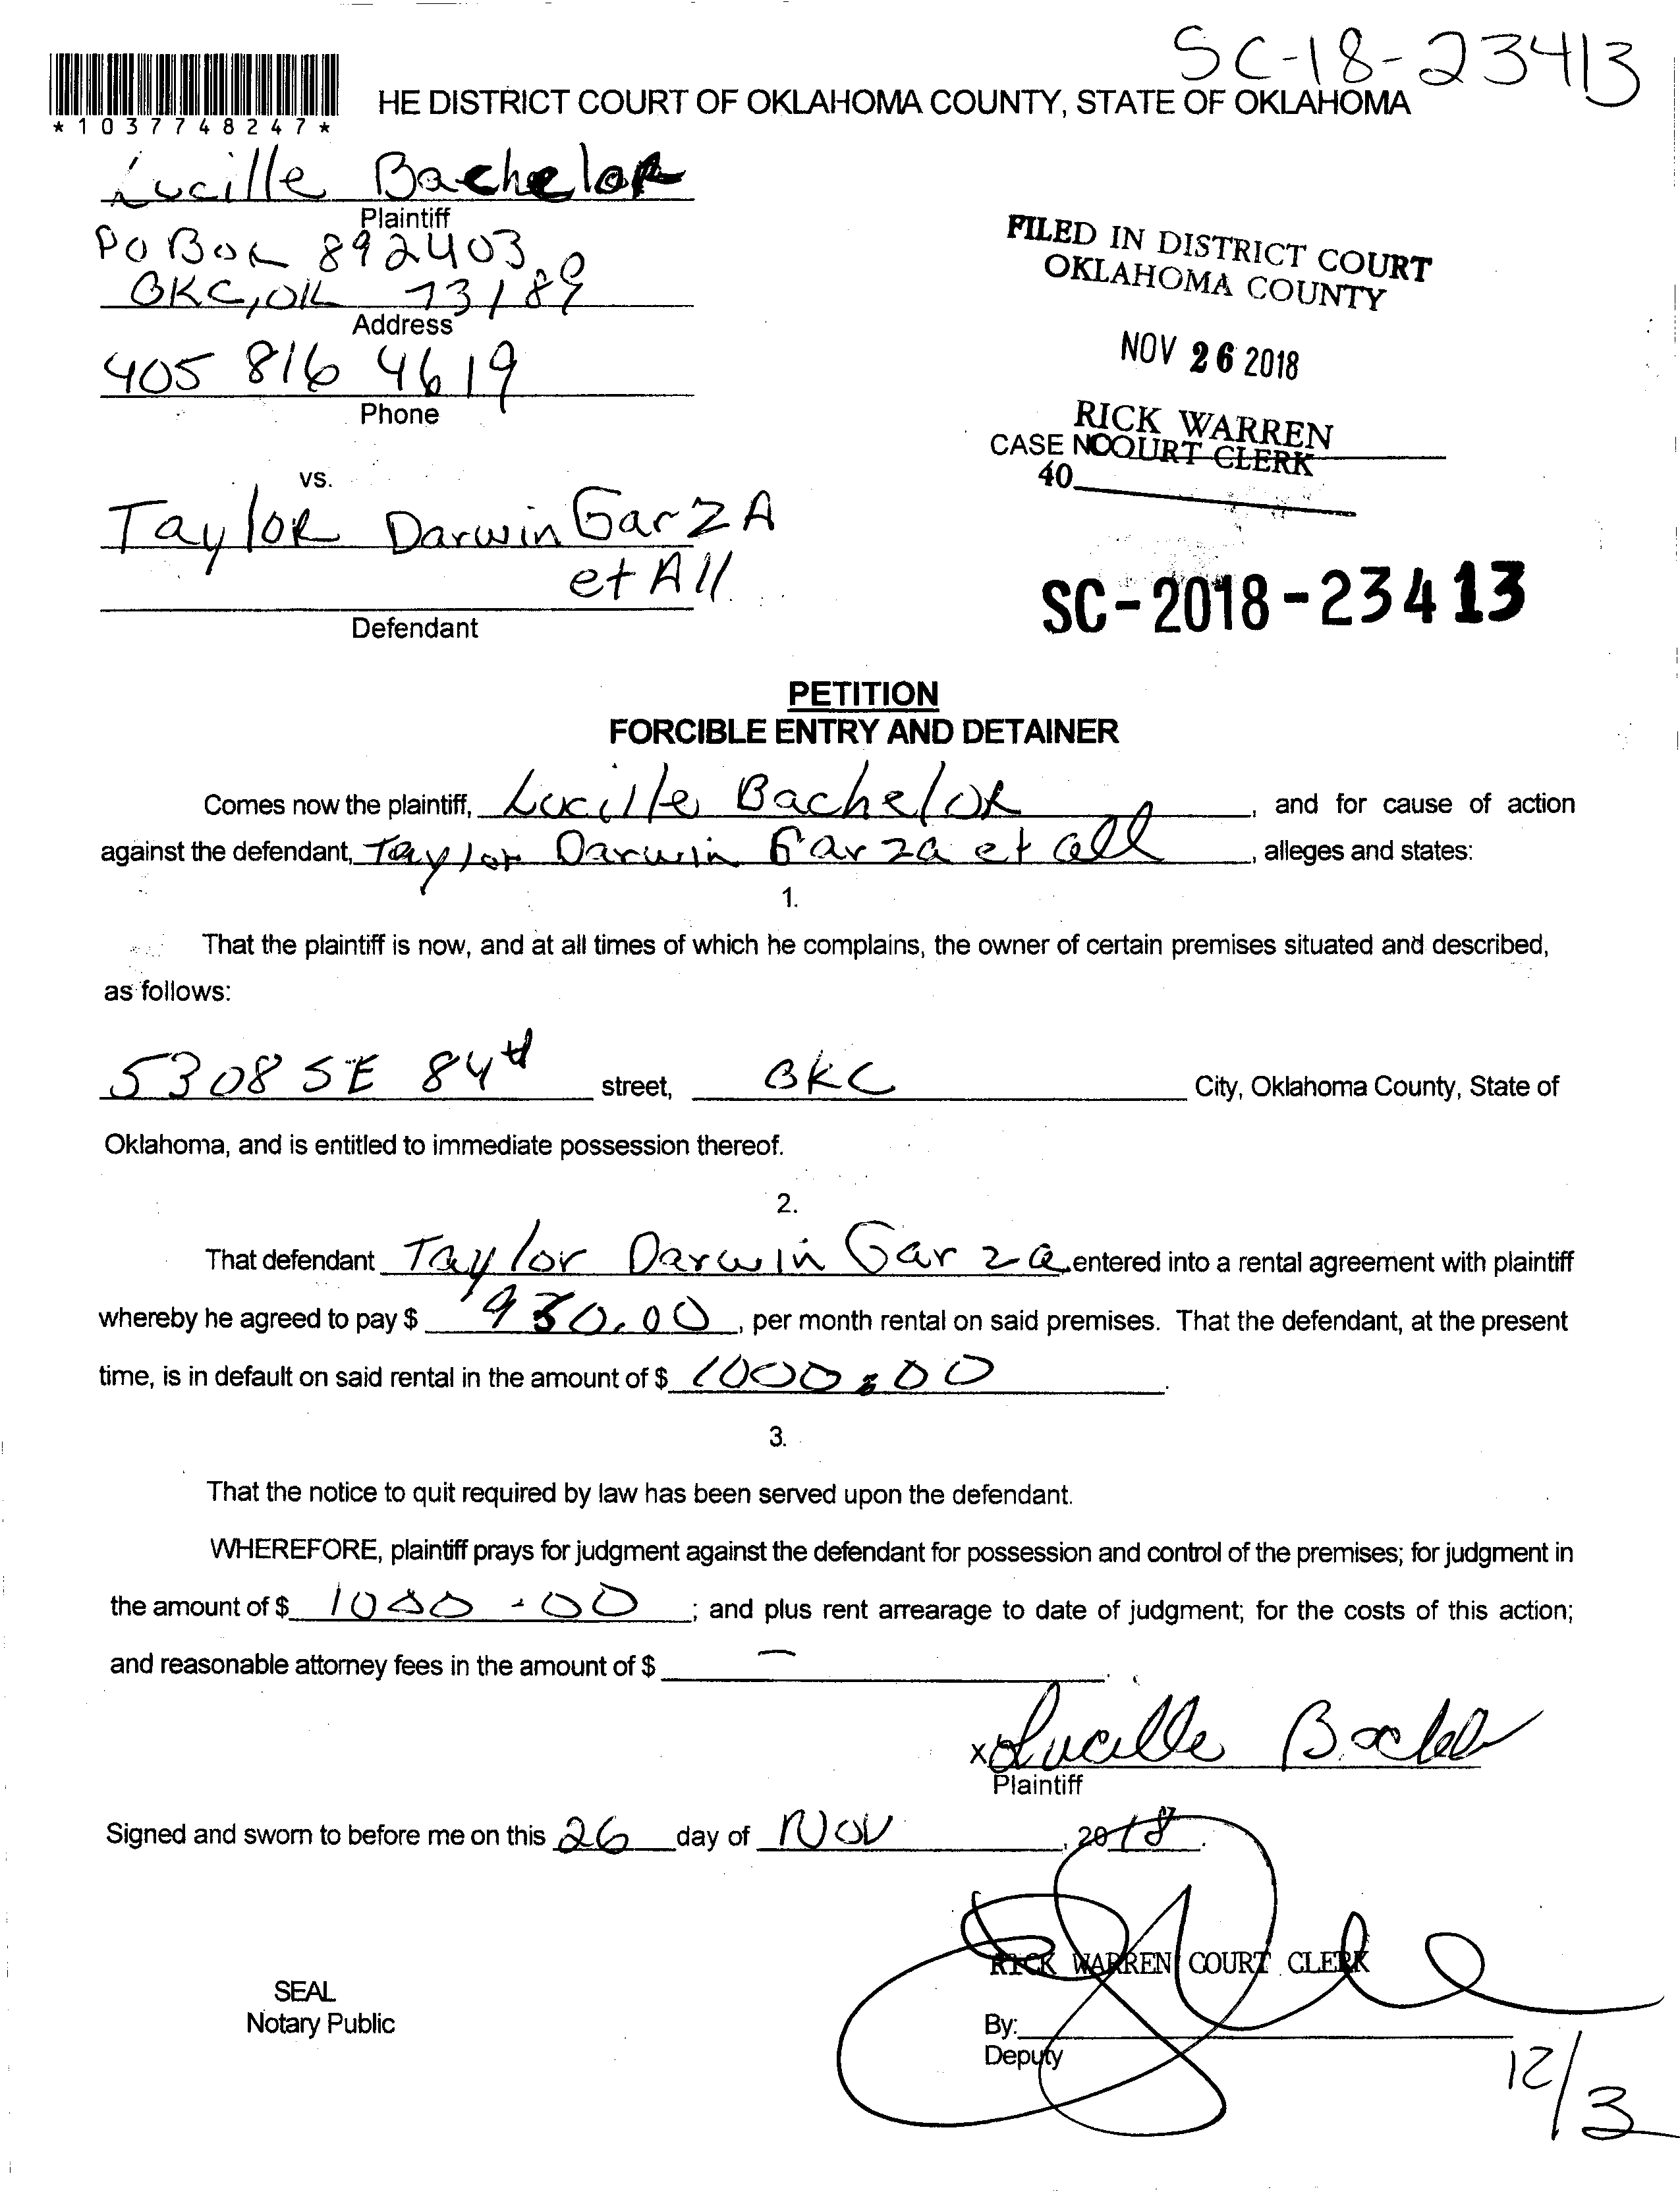 SC-18-23413
*1037748247*
HE DISTRICT COURT OF OKLAHOMA COUNTY, STATE OF OKLAHOMA
Lucille Bachelor
Plaintiff
PO Box 892403
OKC, OK 73189
Address
405 816 4619
Phone
FILED IN DISTRICT COURT
OKLAHOMA COUNTY
NOV 26 2018
RICK WARREN
COURT CLERK
CASE NO
40
vs.
Taylor Darwin GarZA
et All
Defendant
SC-2018-23413
PETITION
FORCIBLE ENTRY AND DETAINER
Comes now the plaintiff, Lucille Bachelor, and for cause of action
against the defendant, Taylor Darwin Garza et all, alleges and states:
1.
That the plaintiff is now, and at all times of which he complains, the owner of certain premises situated and described,
as follows:
5308 SE 84th street, OKC City, Oklahoma County, State of
Oklahoma, and is entitled to immediate possession thereof.
2.
That defendant Taylor Darwin Garza entered into a rental agreement with plaintiff
whereby he agreed to pay $ , per month rental on said premises. That the defendant, at the present
time, is in default on said rental in the amount of $ 1000.00.
3.
That the notice to quit required by law has been served upon the defendant.
WHEREFORE, plaintiff prays for judgment against the defendant for possession and control of the premises; for judgment in
the amount of $ 1000.00; and plus rent arrearage to date of judgment; for the costs of this action;
and reasonable attorney fees in the amount of $ —.
x Lucille
Plaintiff
Signed and sworn to before me on this 26 day of Nov, 2018.
RICK WARREN COURT CLERK
SEAL
Notary Public
By:
Deputy
12/3